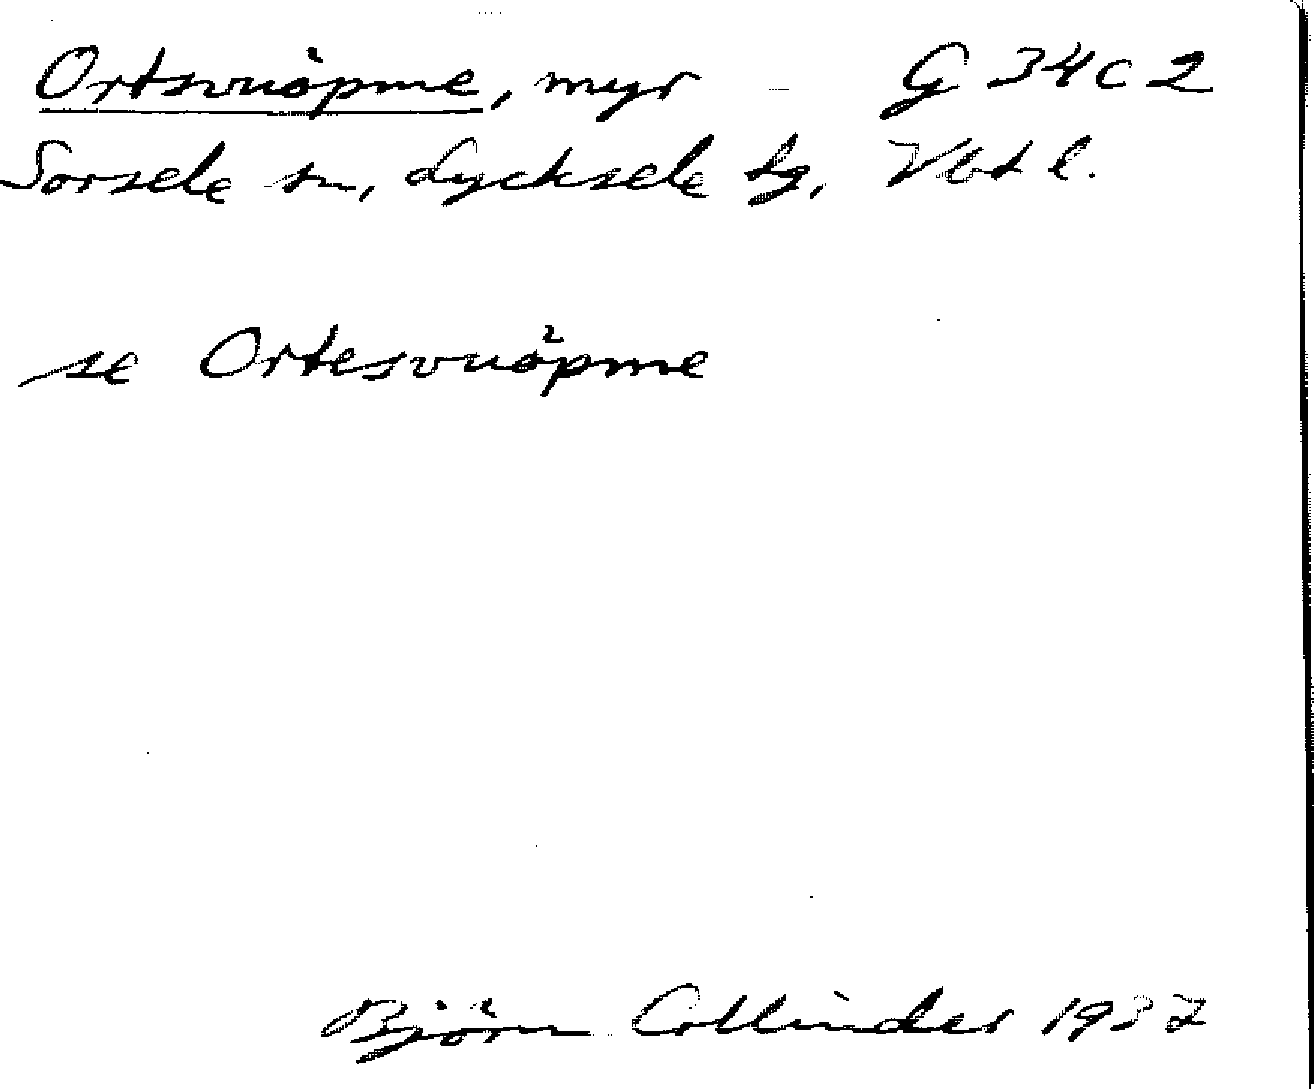 Ortsvuöpme, myr - G 34 C 2
Sorsele sn, Lycksele lg, Vbtl.
se Ortesvuöpme
Björn Collinder 1937